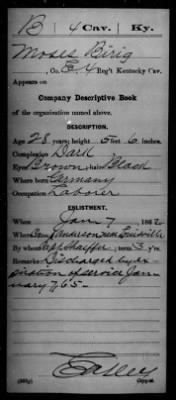 B 4 Cav. Ky.
Moses Birig
, Co. E, 4 Reg't Kentucky Cav.
Appears on
Company Descriptive Book
of the organization named above.
DESCRIPTION.
Age 28 years; height 5 feet 6 inches.
Complexion Dark
Eyes Brown; hair Black
Where born Germany
Occupation Laborer
ENLISTMENT.
When Jan 7, 1862.
Where Camp Anderson near Louisville
By whom Capt Shaeffer; term 3 y'rs.
Remarks: Discharged by ex
piration of service Jan
uary 7, 65.
Copyist.